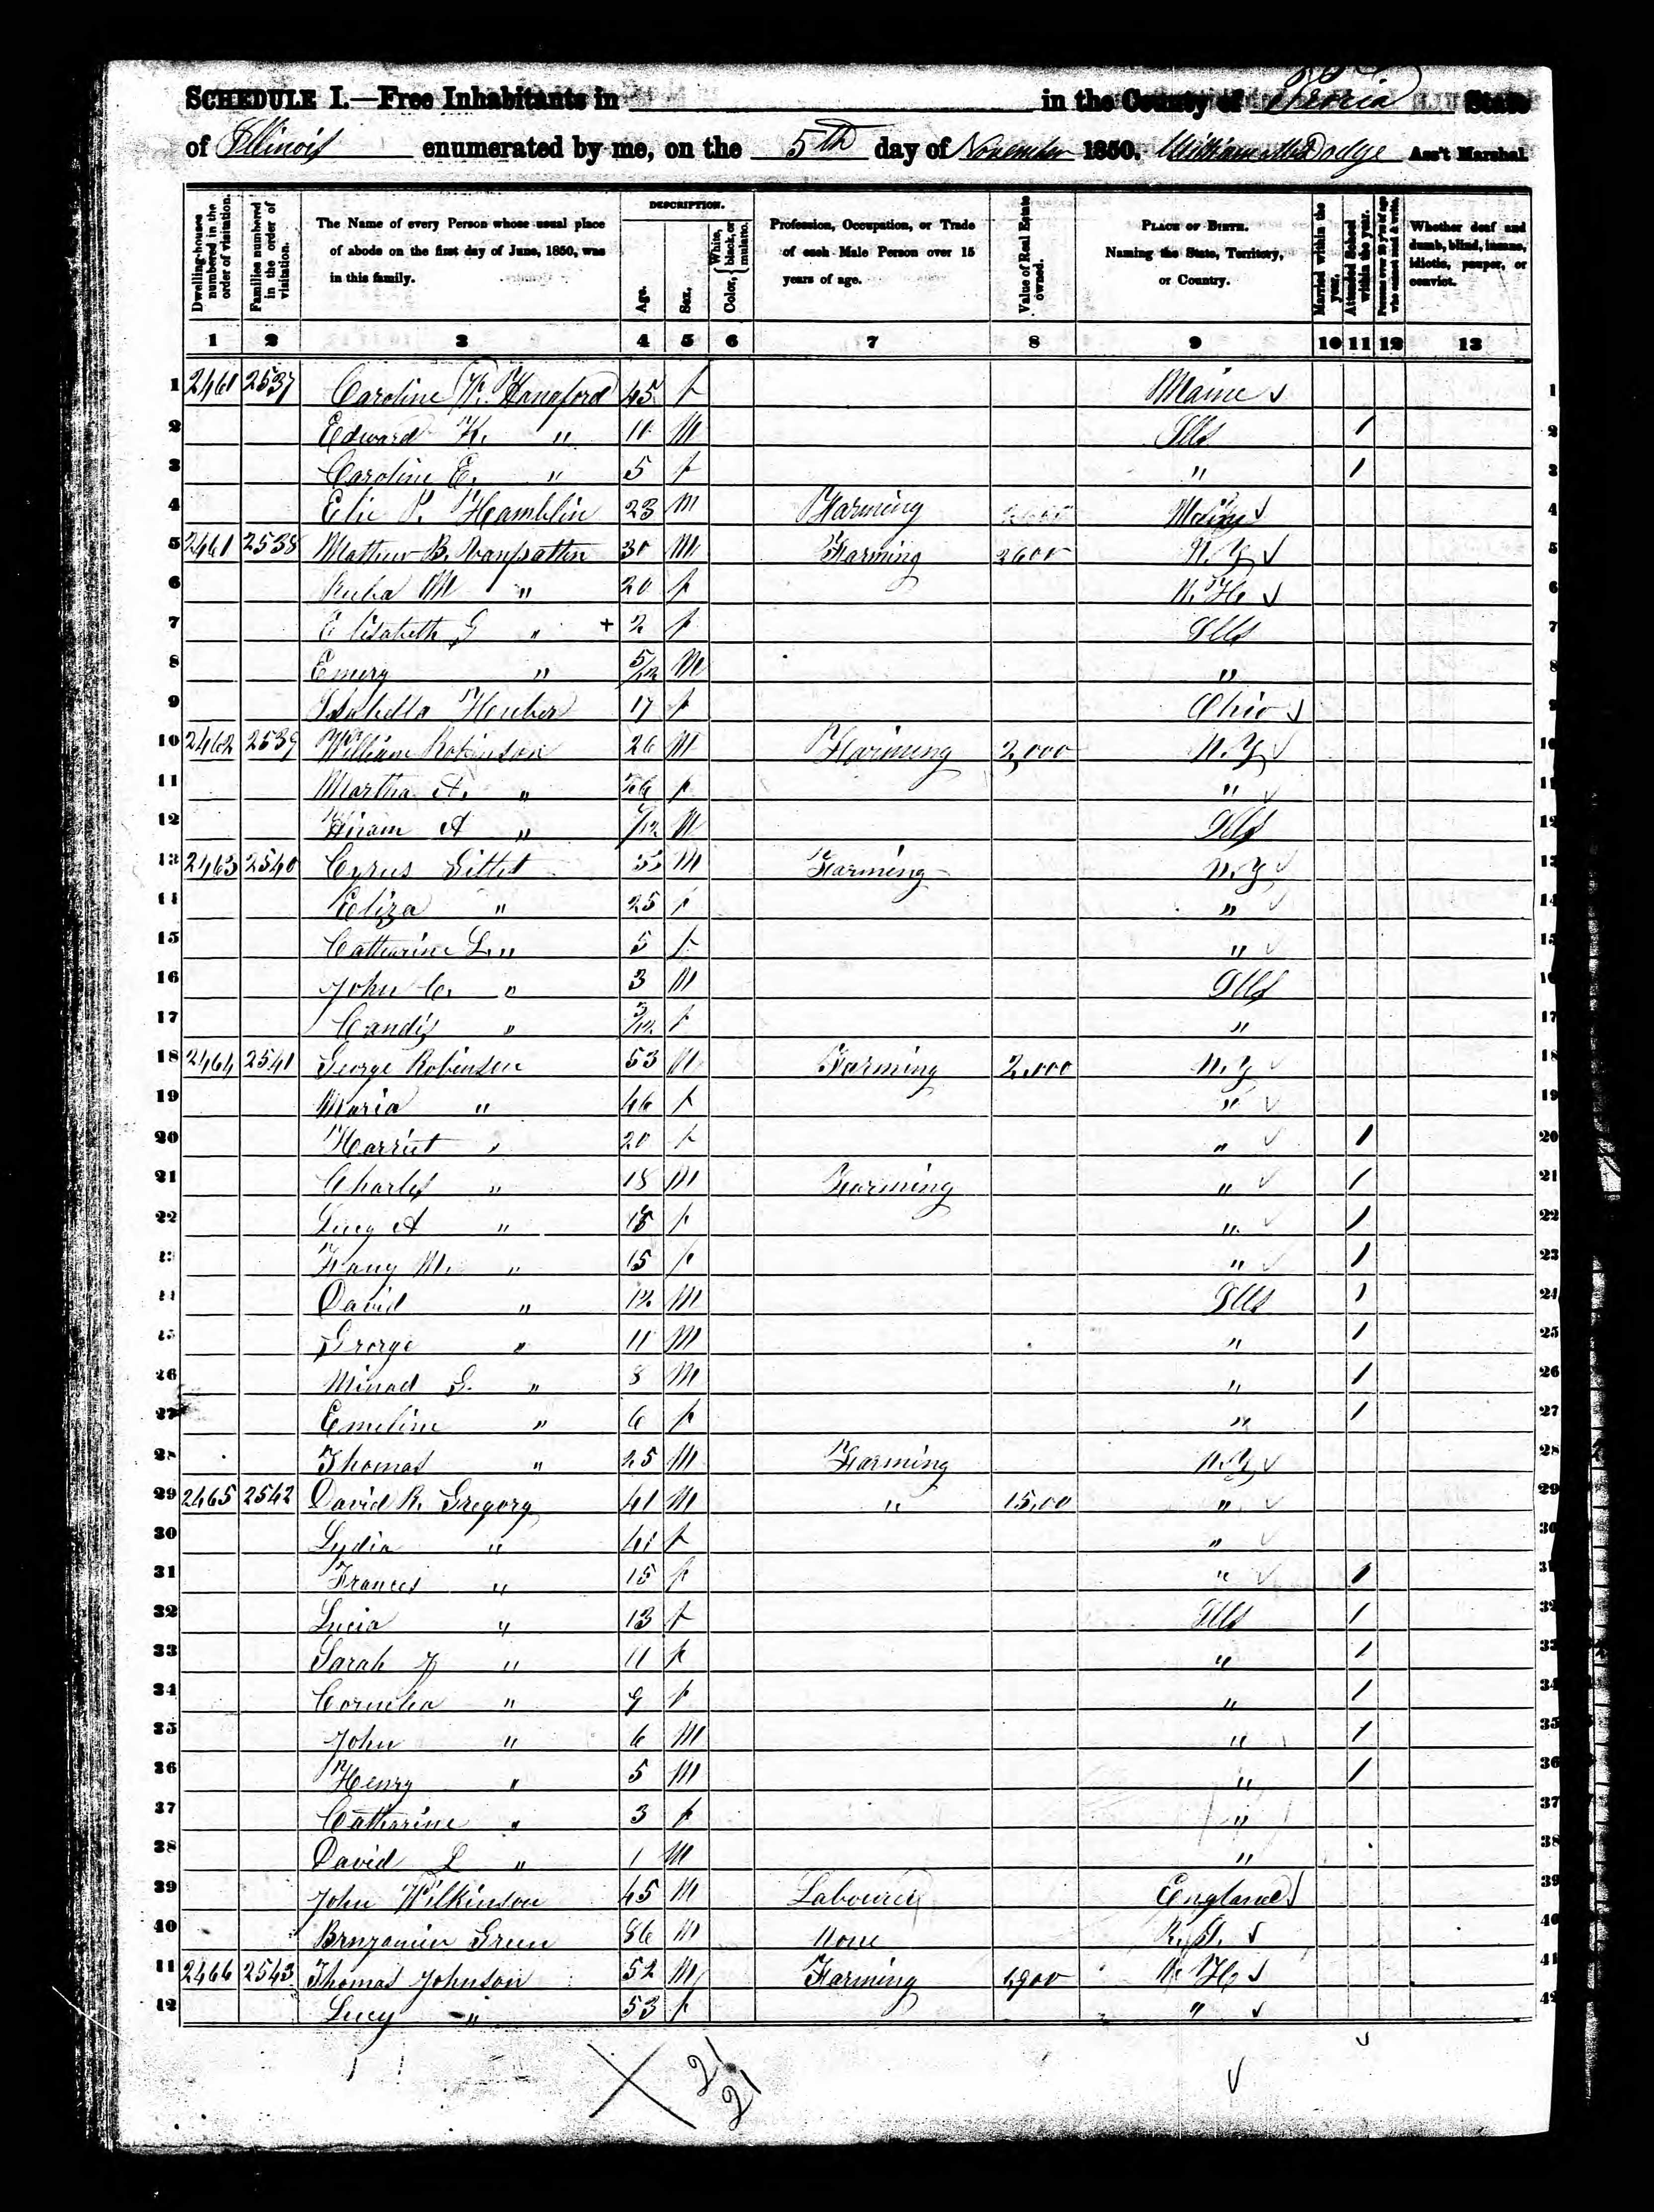 SCHEDULE I.—Free Inhabitants in in the County of Peoria State
of Illinois enumerated by me, on the 5th day of November 1850. William Dodge Ass't Marshal.
Dwelling-houses numbered in the order of visitation.
Families numbered in the order of visitation.
The Name of every Person whose usual place of abode on the first day of June, 1850, was in this family.
DESCRIPTION.
Age.
Sex.
Color, { White, black, or mulatto.
Profession, Occupation, or Trade of each Male Person over 15 years of age.
Value of Real Estate owned.
PLACE OF BIRTH. Naming the State, Territory, or Country.
Married within the year.
Attended School within the year.
Persons over 20 y'rs of age who cannot read & write.
Whether deaf and dumb, blind, insane, idiotic, pauper, or convict.
1 2 3 4 5 6 7 8 9 10 11 12 13
1 2461 2537 Caroline W. Hansford 45 f Maine ✓ 1
2 Edward K. " 11 M Ills 1 2
3 Caroline E. " 5 f " 1 3
4 Hamblin 23 M Farming Maine ✓ 4
5 2461 2538 Mathew B. 30 M Farming 2600 N.Y ✓ 5
6 M " 20 f N.H. ✓ 6
7 Elisabeth G " + 2 f Ills 7
8 Emery " 5/12 M " 8
9 Isabella 17 f Ohio ✓ 9
10 2462 2539 William Robinson 26 M Farming 2,000 N.Y ✓ 10
11 Martha A. " 26 f " ✓ 11
12 Hiram A " /12 M Ills 12
13 2463 2540 Cyrus M Farming N.Y ✓ 13
14 Eliza " 25 f " ✓ 14
15 Catharine L. " 5 f " ✓ 15
16 John C. " 3 M Ills 16
17 Candis " 3/12 f " 17
18 2464 2541 George Robinson 53 M Farming 2,000 N.Y ✓ 18
19 Maria " 46 f " ✓ 19
20 Harriet " 20 f " ✓ 1 20
21 Charles " 18 M Farming " ✓ 1 21
22 Lucy A " 18 f " ✓ 1 22
23 Fany M. " 15 f " ✓ 1 23
24 David " 12 M Ills 1 24
25 George " 11 M " 1 25
26 Minad G. " 8 M " 1 26
27 Emeline " 6 f " 1 27
28 Thomas " 25 M Farming N.Y ✓ 28
29 2465 2542 David R. Gregory 41 M " 15,00 " ✓ 29
30 Lydia " 41 f " ✓ 30
31 Frances " 15 f " ✓ 1 31
32 Lucia " 13 f Ills 1 32
33 Sarah J " 11 f " 1 33
34 Cornelia " 9 f " 1 34
35 John " 6 M " 1 35
36 Henry " 5 M " 1 36
37 Catharine " 3 f " 37
38 David L " 1 M " 38
39 John Wilkinson 45 M Labourer England ✓ 39
40 Benjamin Green 86 M None R.I. ✓ 40
41 2466 2543 Thomas Johnson 52 M Farming 1,900 N.H. ✓ 41
42 Lucy " 53 f " ✓ 42
21
21